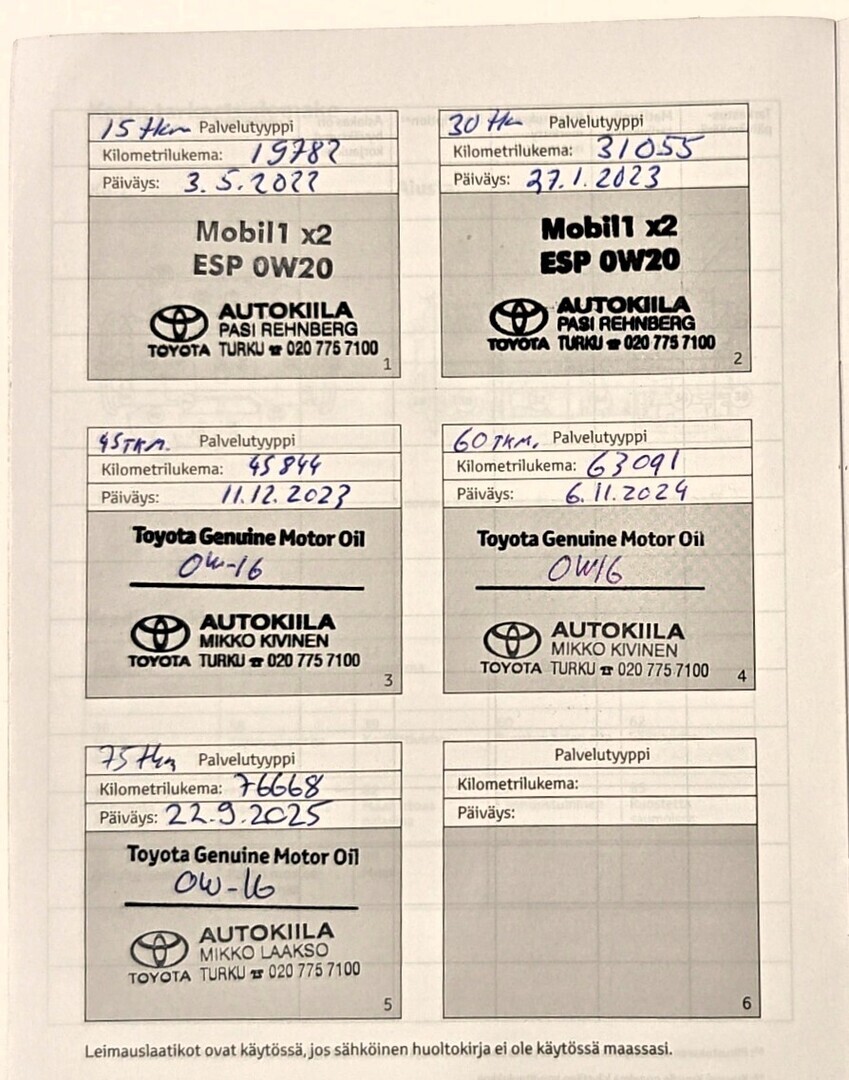 15 tkm Palvelutyyppi
Kilometrilukema: 19782
Päiväys: 3.5.2022
Mobil1 x2
ESP 0W20
AUTOKIILA
PASI REHNBERG
TOYOTA TURKU ☎ 020 775 7100
1
30 tkm Palvelutyyppi
Kilometrilukema: 31055
Päiväys: 27.1.2023
Mobil1 x2
ESP 0W20
AUTOKIILA
PASI REHNBERG
TOYOTA TURKU ☎ 020 775 7100
2
45 TKM. Palvelutyyppi
Kilometrilukema: 45844
Päiväys: 11.12.2023
Toyota Genuine Motor Oil
0W-16
AUTOKIILA
MIKKO KIVINEN
TOYOTA TURKU ☎ 020 775 7100
3
60 TKM. Palvelutyyppi
Kilometrilukema: 63091
Päiväys: 6.11.2024
Toyota Genuine Motor Oil
0W16
AUTOKIILA
MIKKO KIVINEN
TOYOTA TURKU ☎ 020 775 7100
4
75 tkm Palvelutyyppi
Kilometrilukema: 76668
Päiväys: 22.9.2025
Toyota Genuine Motor Oil
0W-16
AUTOKIILA
MIKKO LAAKSO
TOYOTA TURKU ☎ 020 775 7100
5
Palvelutyyppi
Kilometrilukema:
Päiväys:
6
Leimauslaatikot ovat käytössä, jos sähköinen huoltokirja ei ole käytössä maassasi.